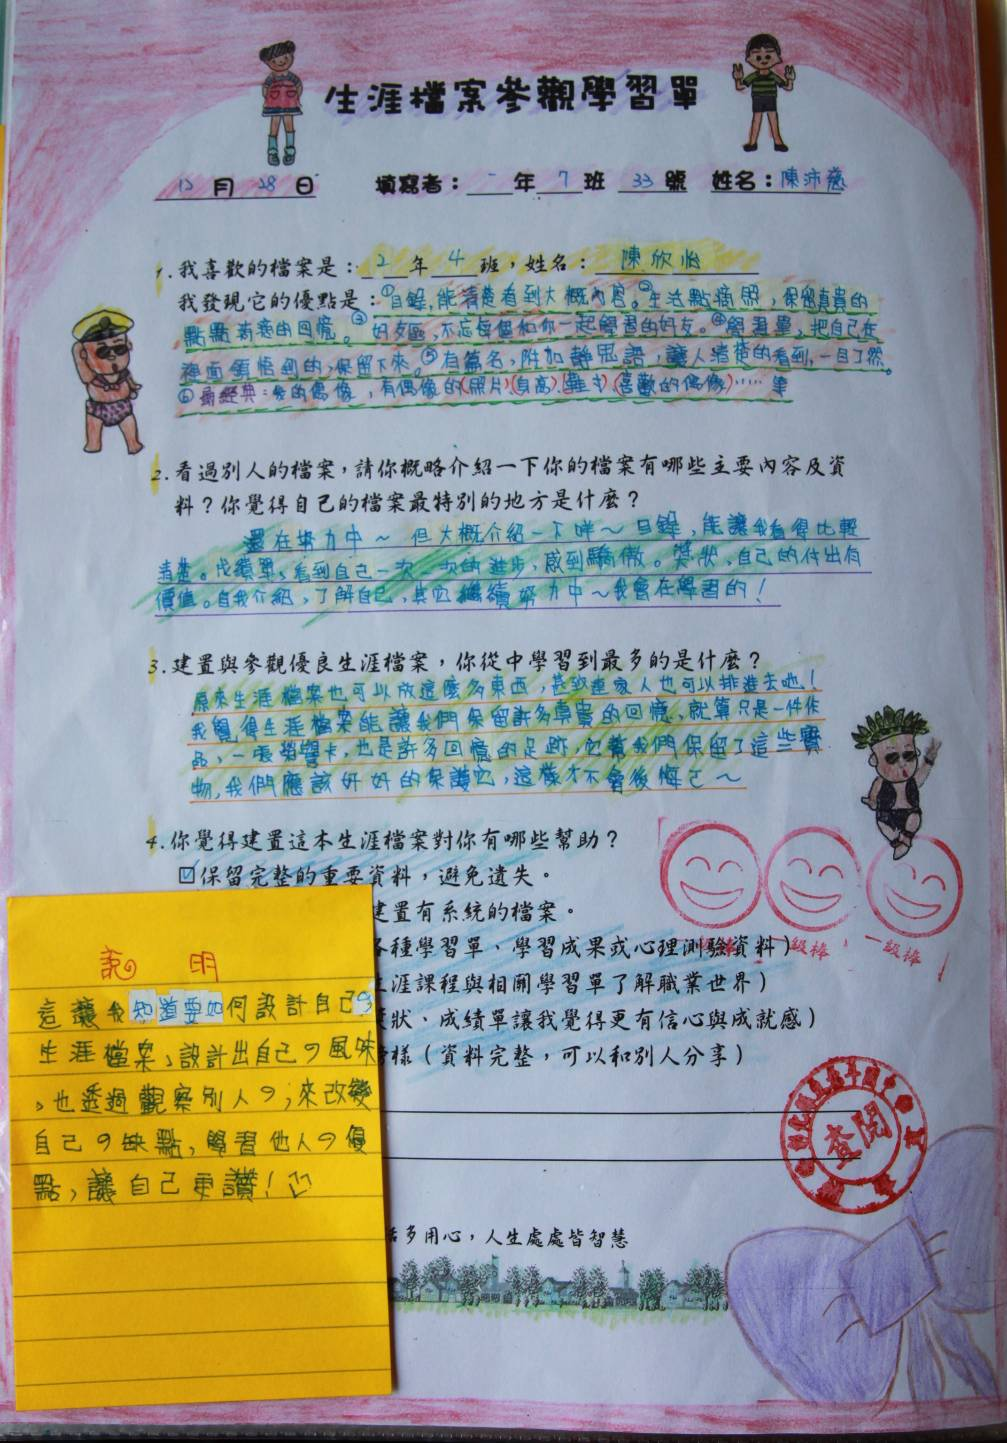 生涯檔案參觀學習單
12月28日 填寫者:一年7班33號 姓名:陳沛慈
1.我喜歡的檔案是:2年4班,姓名:陳欣怡
我發現它的優點是:①目錄,能清楚看到大概內容。②生活點滴照,保留真貴的
點點滴滴的回憶。③好友區,不忘每個和你一起學習的好友。④學習單,把自己在
裡面領悟到的,保留下來。⑤有篇名,附加靜思語,讓人清楚的看到,一目了然。
⑥最經典:我的偶像,有偶像的(照片)(身高)(喜歡的偶像)……等
2.看過別人的檔案,請你概略介紹一下你的檔案有哪些主要內容及資
料?你覺得自己的檔案最特別的地方是什麼?
還在努力中~但大概介紹一下咩~目錄,能讓我看得比較
清楚。成績單,看到自己一次一次的進步,感到驕傲。獎狀,自己的付出有
價值。自我介紹,了解自己,其它繼續努力中~我會在學習的!
3.建置與參觀優良生涯檔案,你從中學習到最多的是什麼?
原來生涯檔案也可以放這麼多東西,甚致連家人也可以排進去吔!
我覺得生涯檔案能讓我們保留許多真貴的回憶、就算只是一件作
品,一張獎勵卡,也是許多回憶的足跡,它幫我們保留了這些寶
物,我們應該好好的保護它,這樣才不會後悔己~
4.你覺得建置這本生涯檔案對你有哪些幫助?
☑保留完整的重要資料,避免遺失。
建置有系統的檔案。
各種學習單、學習成果或心理測驗資料)
級棒,一級棒!
生涯課程與相關學習單了解職業世界)
獎狀、成績單讓我覺得更有信心與成就感)
榜樣(資料完整,可以和別人分享)
說明
這讓我知道要如何設計自己的
生涯檔案,設計出自己的風味
,也透過觀察別人的,來改變
自己的缺點,學習他人的優
點,讓自己更讚!
查閱
活多用心,人生處處皆智慧